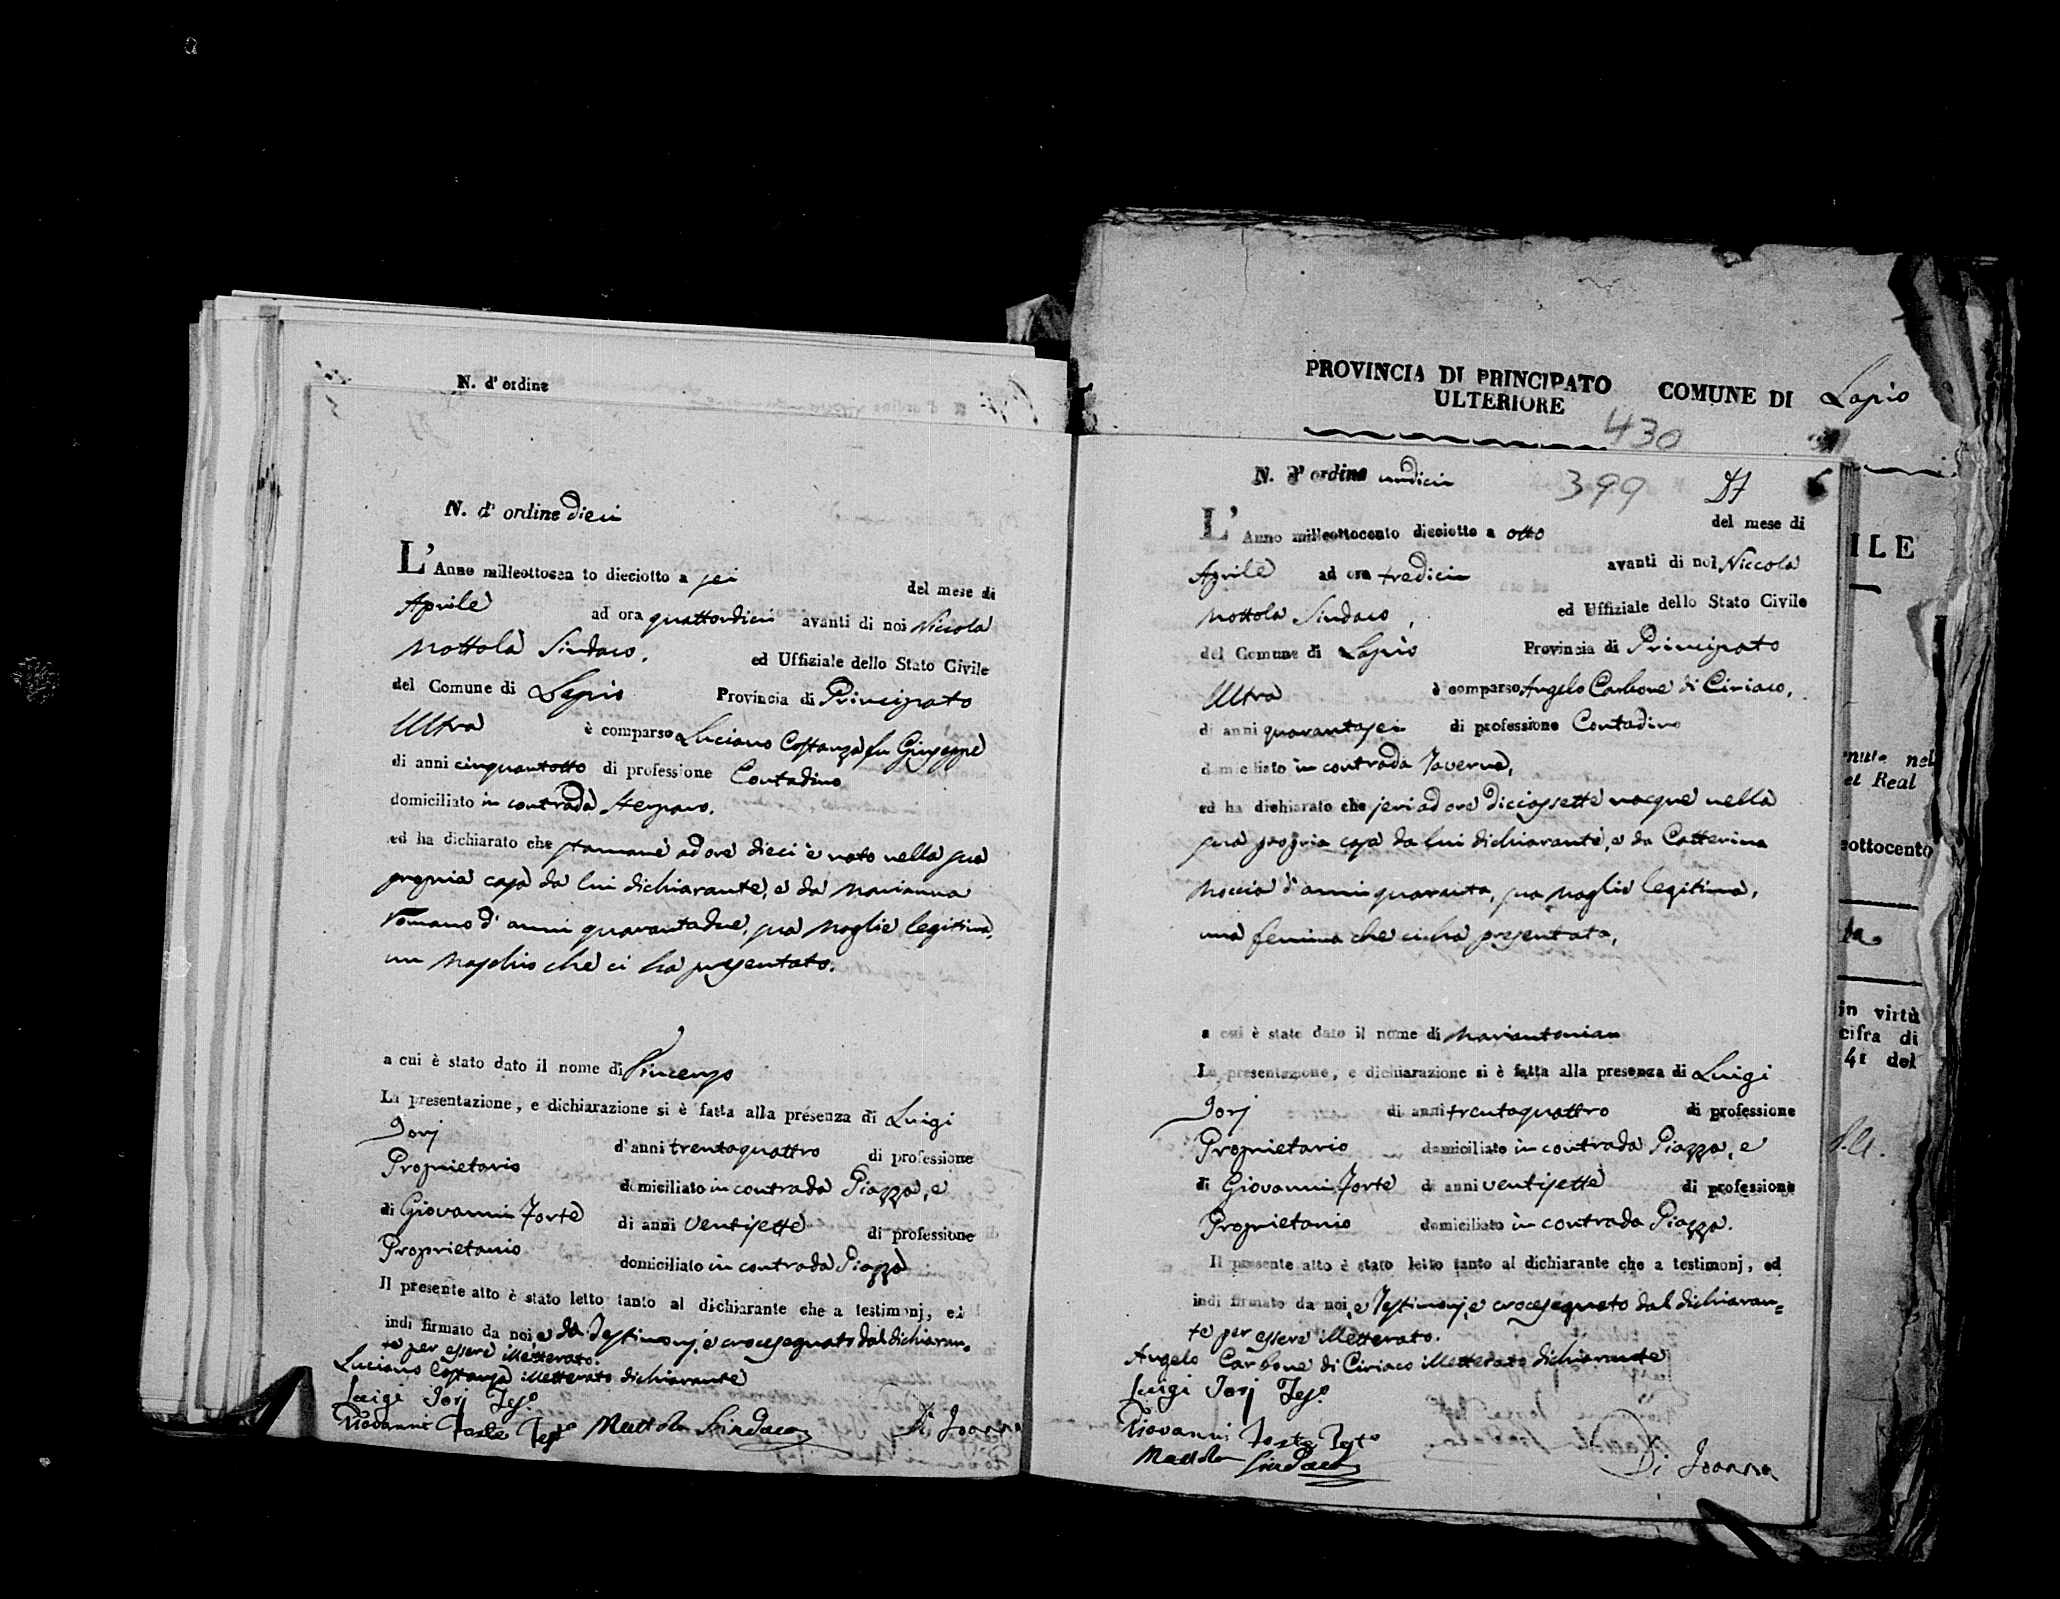 N. d' ordine
N. d' ordine dieci
L' Anno milleottocento dieciotto a sei del mese di
Aprile ad ora quattordici avanti di noi Niccola
Mottola Sindaco, ed Uffiziale dello Stato Civile
del Comune di Lapio Provincia di Principato
Ultra è comparso Luciano Costanza fu Giuseppe
di anni cinquantotto di professione Contadino
domiciliato in contrada
ed ha dichiarato che stamane ad ore dieci è nato nella sua
propria casa da lui dichiarante, e da Marianna
Romano d' anni quarantadue, sua Moglie legitima,
un Maschio che ci ha presentato.
a cui è stato dato il nome di Vincenzo
La presentazione, e dichiarazione si è fatta alla presenza di Luigi
Iorj d' anni trentaquattro di professione
Proprietario domiciliato in contrada Piazza, e
di Giovanni Forte di anni ventisette di professione
Proprietario domiciliato in contrada Piazza
Il presente atto è stato letto tanto al dichiarante che a testimonj, ed
indi firmato da noi, e da Testimonj, e crocesegnato dal dichiaran-
te per essere illetterato.
Luciano Costanza illetterato dichiarante
Luigi Iorj Tes.o
Giovanni Forte Tes.o Mottola Sindaco Di Ioanna
PROVINCIA DI PRINCIPATO
ULTERIORE
COMUNE DI Lapio
430
N. d' ordine undici 399
L' Anno milleottocento dieciotto a otto del mese di
Aprile ad ora tredici avanti di noi Niccola
Mottola Sindaco, ed Uffiziale dello Stato Civile
del Comune di Lapio Provincia di Principato
Ultra è comparso Angelo Carbone di Ciriaco,
di anni quarantasei di professione Contadino
domiciliato in contrada Taverna,
ed ha dichiarato che jeri ad ore diciassette nacque nella
sua propria casa da lui dichiarante, e da Catterina
Moccia d' anni quaranta, sua Moglie legitima,
una femina che ci ha presentata,
a cui è stato dato il nome di Mariantonia
La presentazione, e dichiarazione si è fatta alla presenza di Luigi
Iorj di anni trentaquattro di professione
Proprietario domiciliato in contrada Piazza, e
di Giovanni Forte di anni ventisette di professione
Proprietario domiciliato in contrada Piazza.
Il presente atto è stato letto tanto al dichiarante che a testimonj, ed
indi firmato da noi, e Testimonj, e crocesegnato dal dichiaran=
te per essere illetterato.
Angelo Carbone di Ciriaco illetterato dichiarante
Luigi Iorj Tes.o
Giovanni Forte Test.o
Mottola Sindaco Di Ioanna
ILE
nel
el Real
ottocento
in virtù
cifra di
41 del